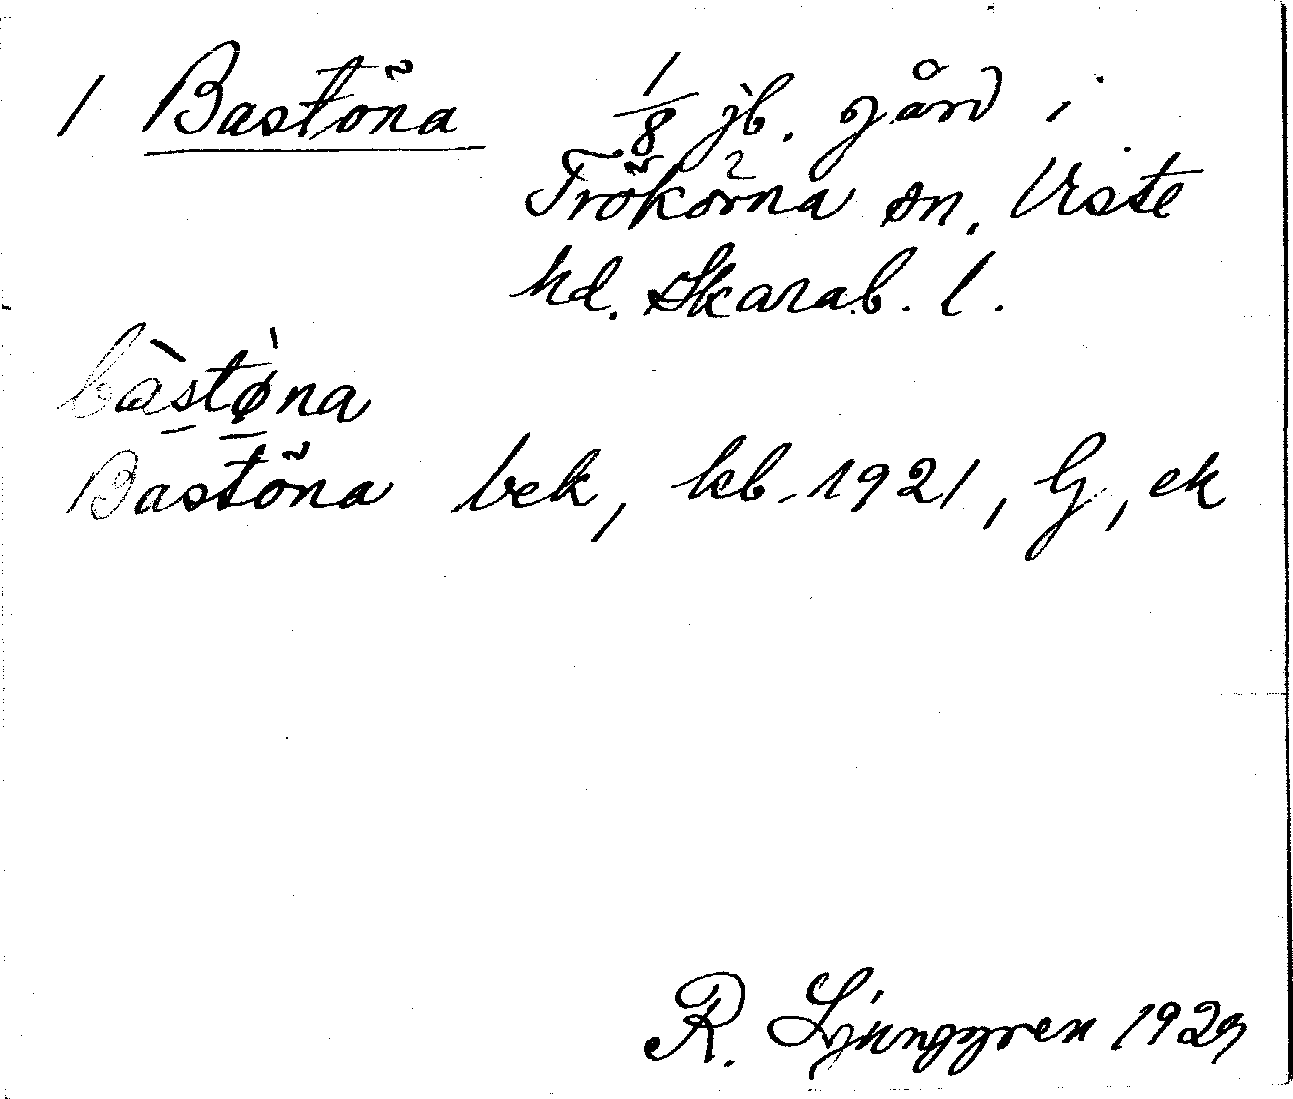 1 Bastöna 1/8 jb. gård i
Trökörna sn. Viste
hd. Skarab. l.
bàstø̀na
Bastöna bek, kb. 1921, G, ek
R. Ljunggren 1929